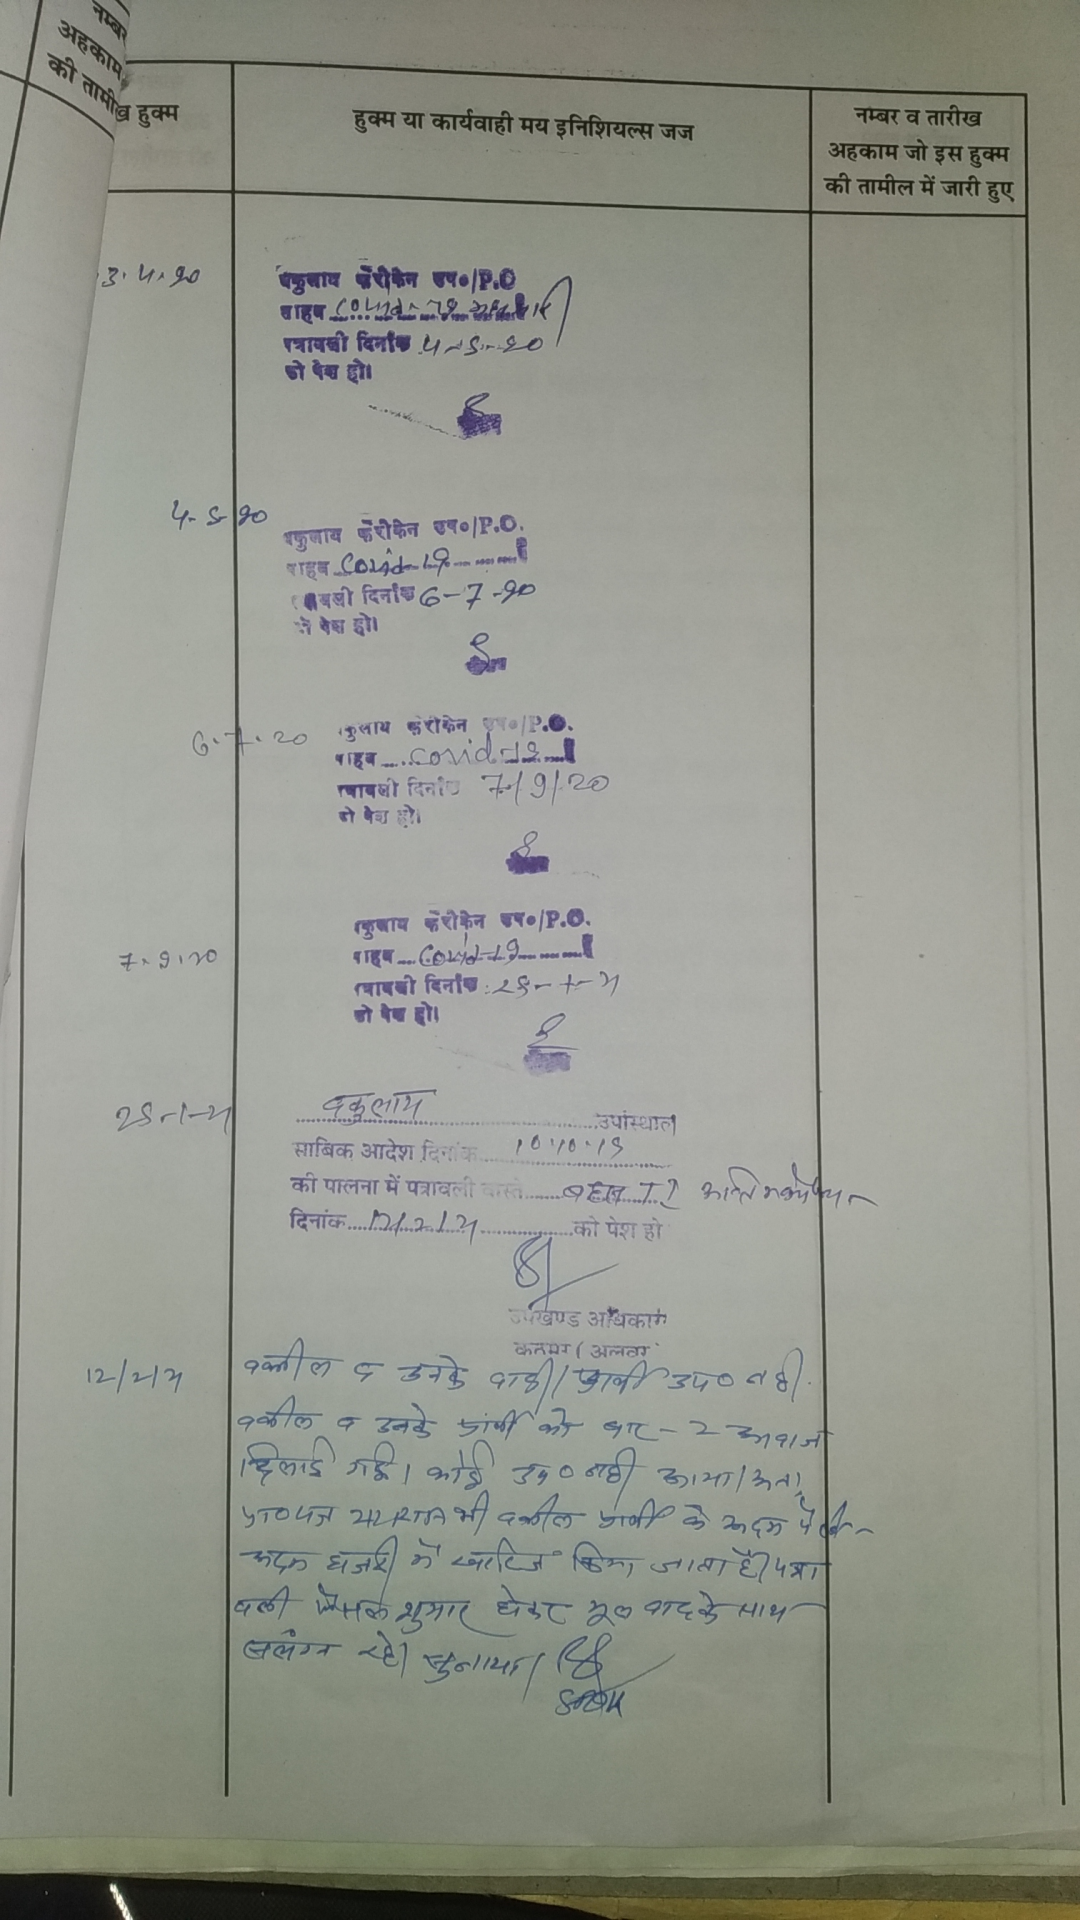 नम्बर
अहकाम
की तामी
ख हुक्म
हुक्म या कार्यवाही मय इनिशियल्स जज
नम्बर व तारीख
अहकाम जो इस हुक्म
की तामील में जारी हुए
3.4.20
वकुलाय फेरीकेन उप०/P.O
साहब Covid-19
पत्रावली दिनांक 4-5-20
को पेश हो।
4-5-20
वकुलाय फेरीकेन उप०/P.O.
साहब Covid-19
पत्रावली दिनांक 6-7-20
को पेश हो।
6.7.20
वकुलाय फेरीकेन उप०/P.O.
साहब Covid-19
पत्रावली दिनांक 7/9/20
को पेश हो।
7.9.20
वकुलाय फेरीकेन उप०/P.O.
साहब Covid-19
पत्रावली दिनांक 25-1-21
को पेश हो।
25-1-21
वकुलाय उपस्थित
साबिक आदेश दिनांक 10.10.19
की पालना में पत्रावली वास्ते बहस T.I
दिनांक 12/2/21 को पेश हो
उपखण्ड अधिकारी
कठूमर (अलवर
12/2/21
वकील व उनके वादी/प्रार्थी उप० नही
वकील व उनके प्रार्थी को बार-2 आवाज
दिलाई गई। कोई उप० नही आया। अतः
प्रा०पत्र वकील प्रार्थी के अदम पैरवी-
अदम हाजरी में खारिज किया जाता है। पत्रा
वली फैसल शुमार होकर मूल वाद के साथ
संलग्न रहे। सुनाया।